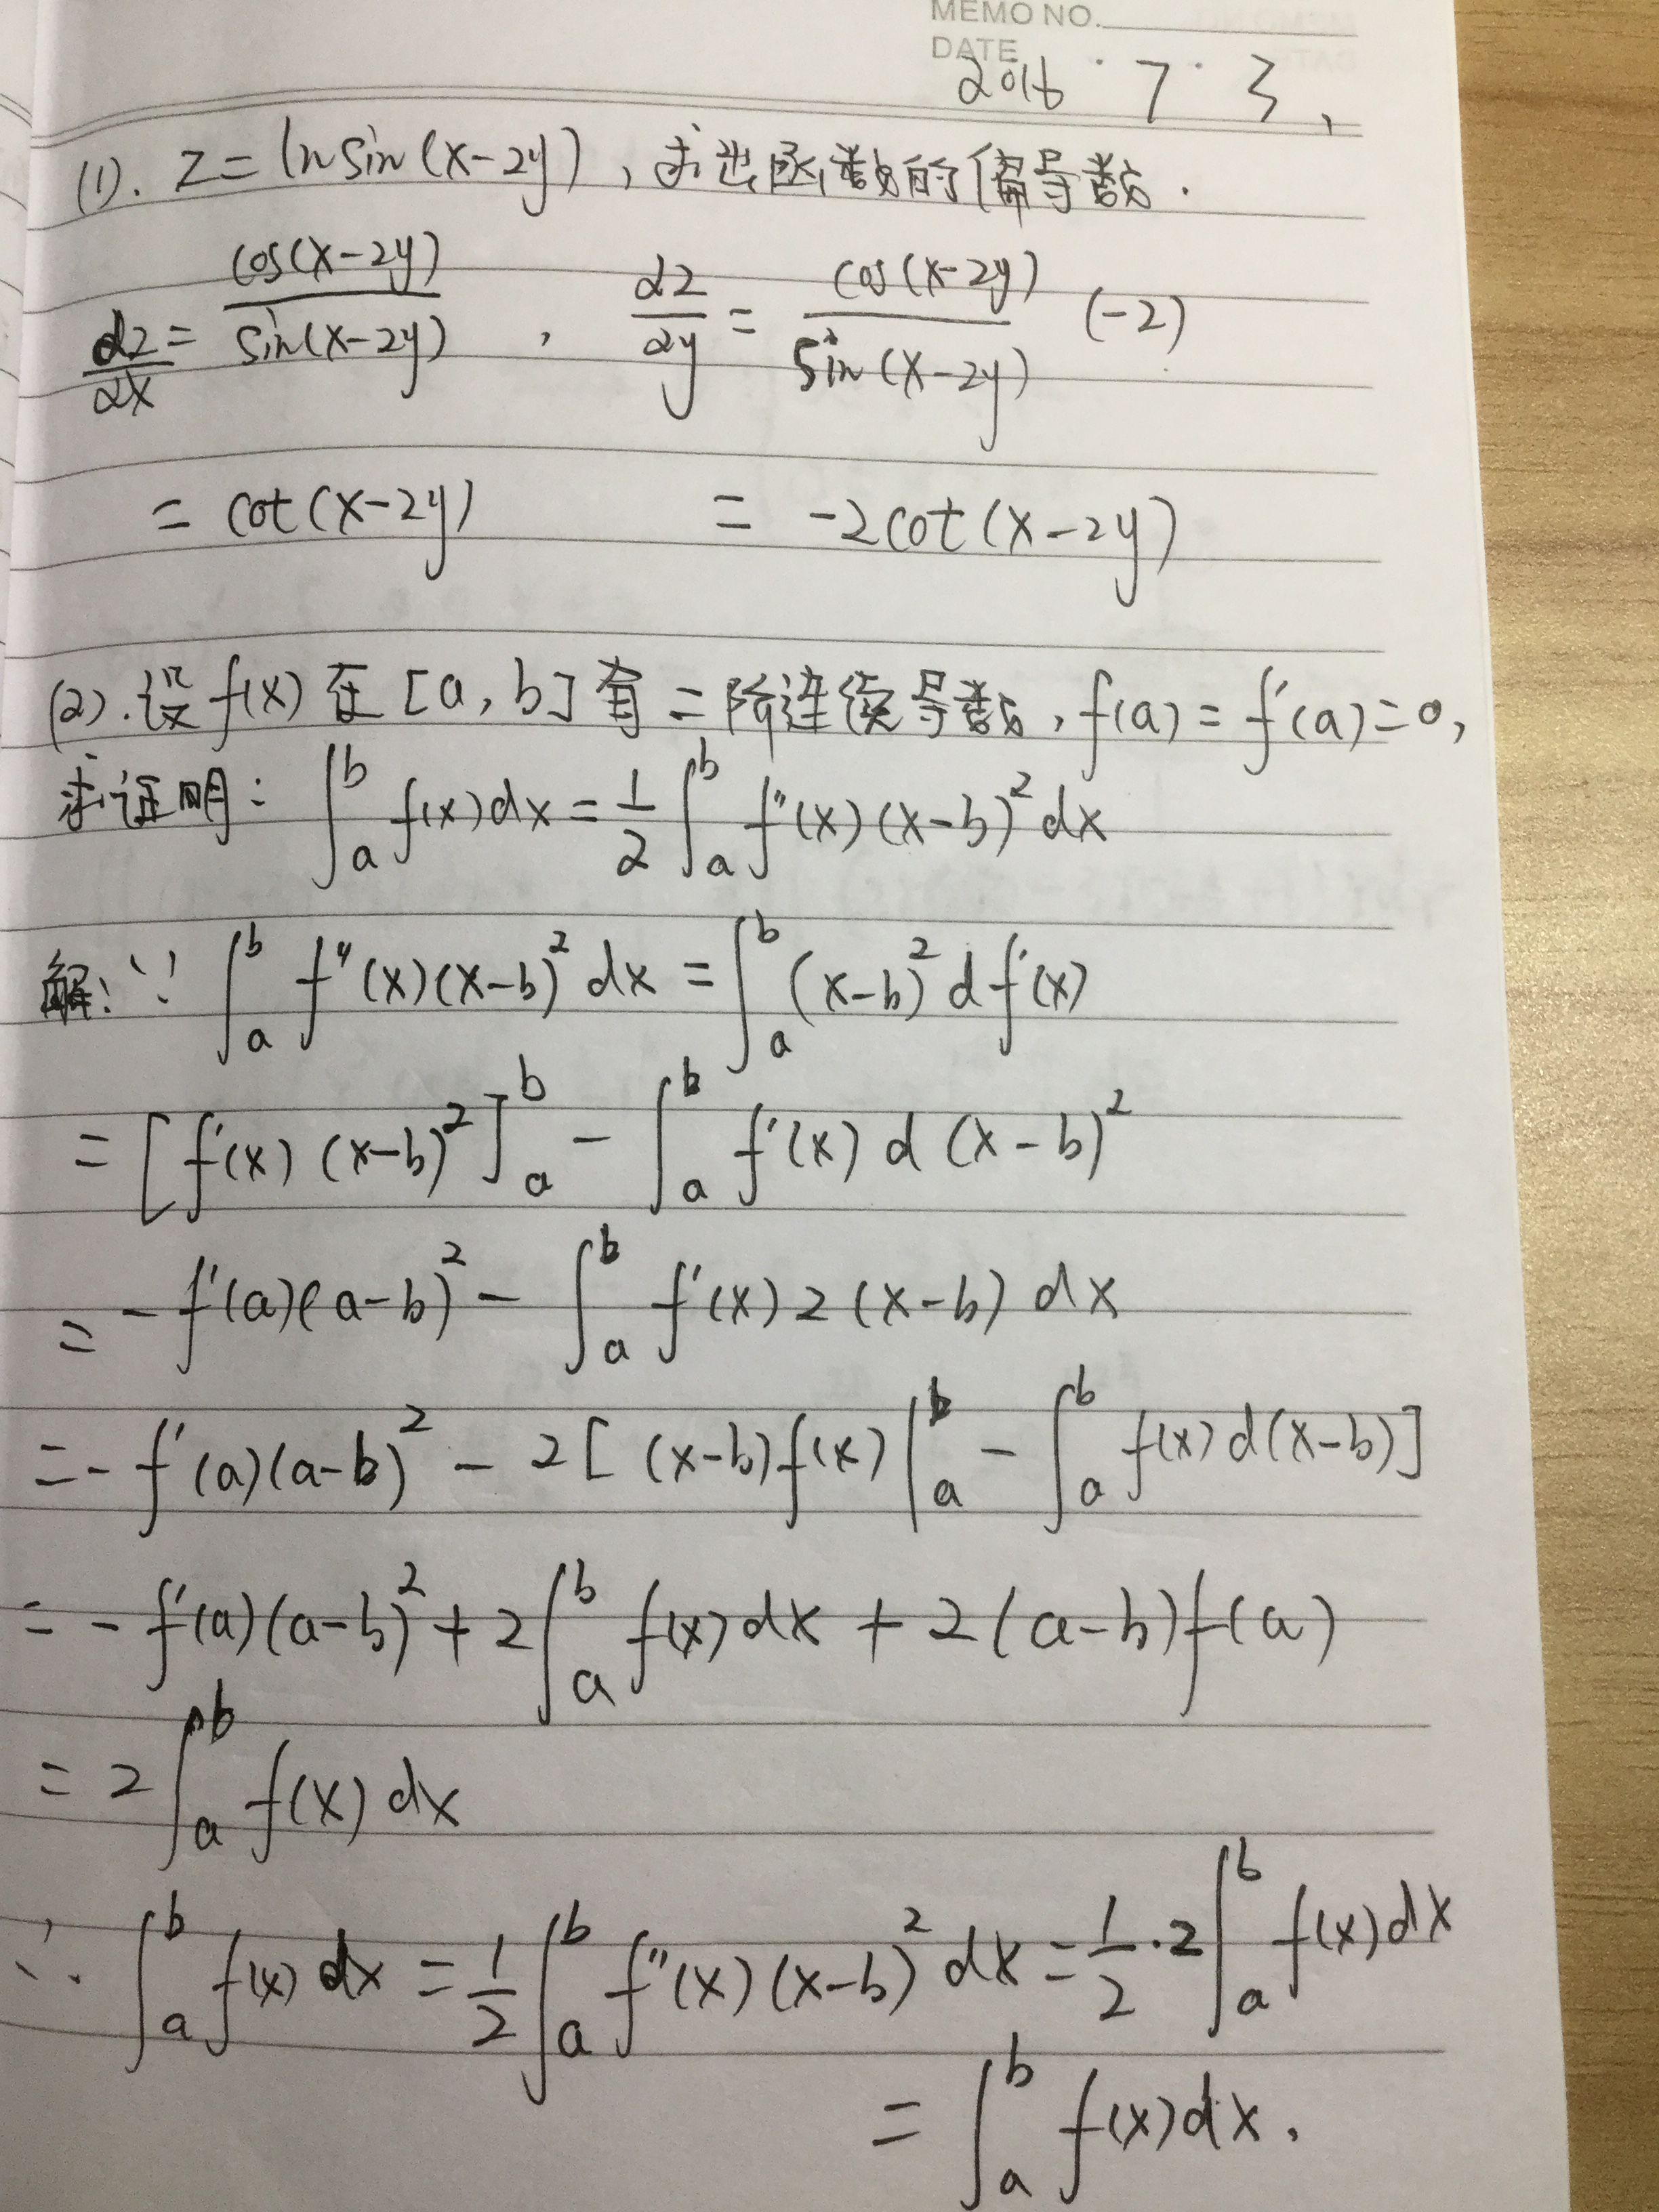 MEMO NO.
DATE
2016 · 7 · 3,
(1). z = ln sin(x-2y), 求此函数的偏导数.
∂z/∂x = cos(x-2y)/sin(x-2y) , ∂z/∂y = cos(x-2y)/sin(x-2y) (-2)
= cot(x-2y) = -2cot(x-2y)
(2). 设f(x)在[a,b]有二阶连续导数, f(a) = f'(a) = 0,
求证明: ∫_a^b f(x)dx = 1/2 ∫_a^b f''(x)(x-b)^2 dx
解: ∵ ∫_a^b f''(x)(x-b)^2 dx = ∫_a^b (x-b)^2 d f'(x)
= [f'(x) (x-b)^2]_a^b - ∫_a^b f'(x) d (x-b)^2
= -f'(a)(a-b)^2 - ∫_a^b f'(x) 2(x-b) dx
= -f'(a)(a-b)^2 - 2[ (x-b)f(x) |_a^b - ∫_a^b f(x) d(x-b) ]
= -f'(a)(a-b)^2 + 2∫_a^b f(x)dx + 2(a-b)f(a)
= 2∫_a^b f(x) dx
∴ ∫_a^b f(x) dx = 1/2 ∫_a^b f''(x)(x-b)^2 dx = 1/2 · 2∫_a^b f(x)dx
= ∫_a^b f(x)dx.